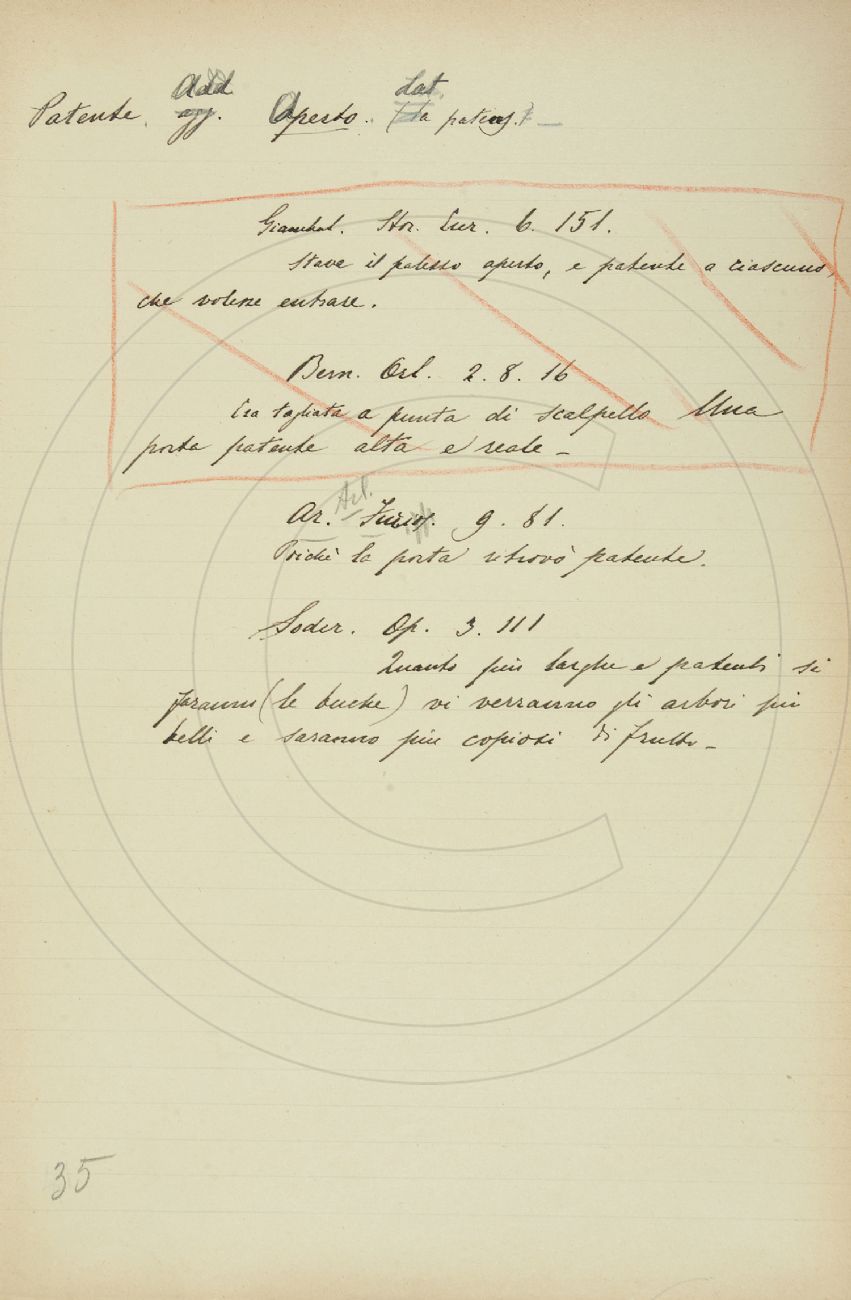 Add Lat.
Patente. agg. Aperto. (da patens.) —
Giambul. Stor. Eur. 6. 151.
Stava il palazzo aperto, e patente a ciascuno,
che volesse entrare.
Bern. Orl. 2. 8. 16
Era tagliata a punta di scalpello Una
porta patente alta e reale —
Arl.
Ar. Furios. 9. 81.
Poichè la porta ritrovò patente.
Soder. Op. 3. 111
Quanto più larghe e patenti si
faranno (le buche) vi verranno gli arbori più
belli e saranno più copiosi di frutto —
35